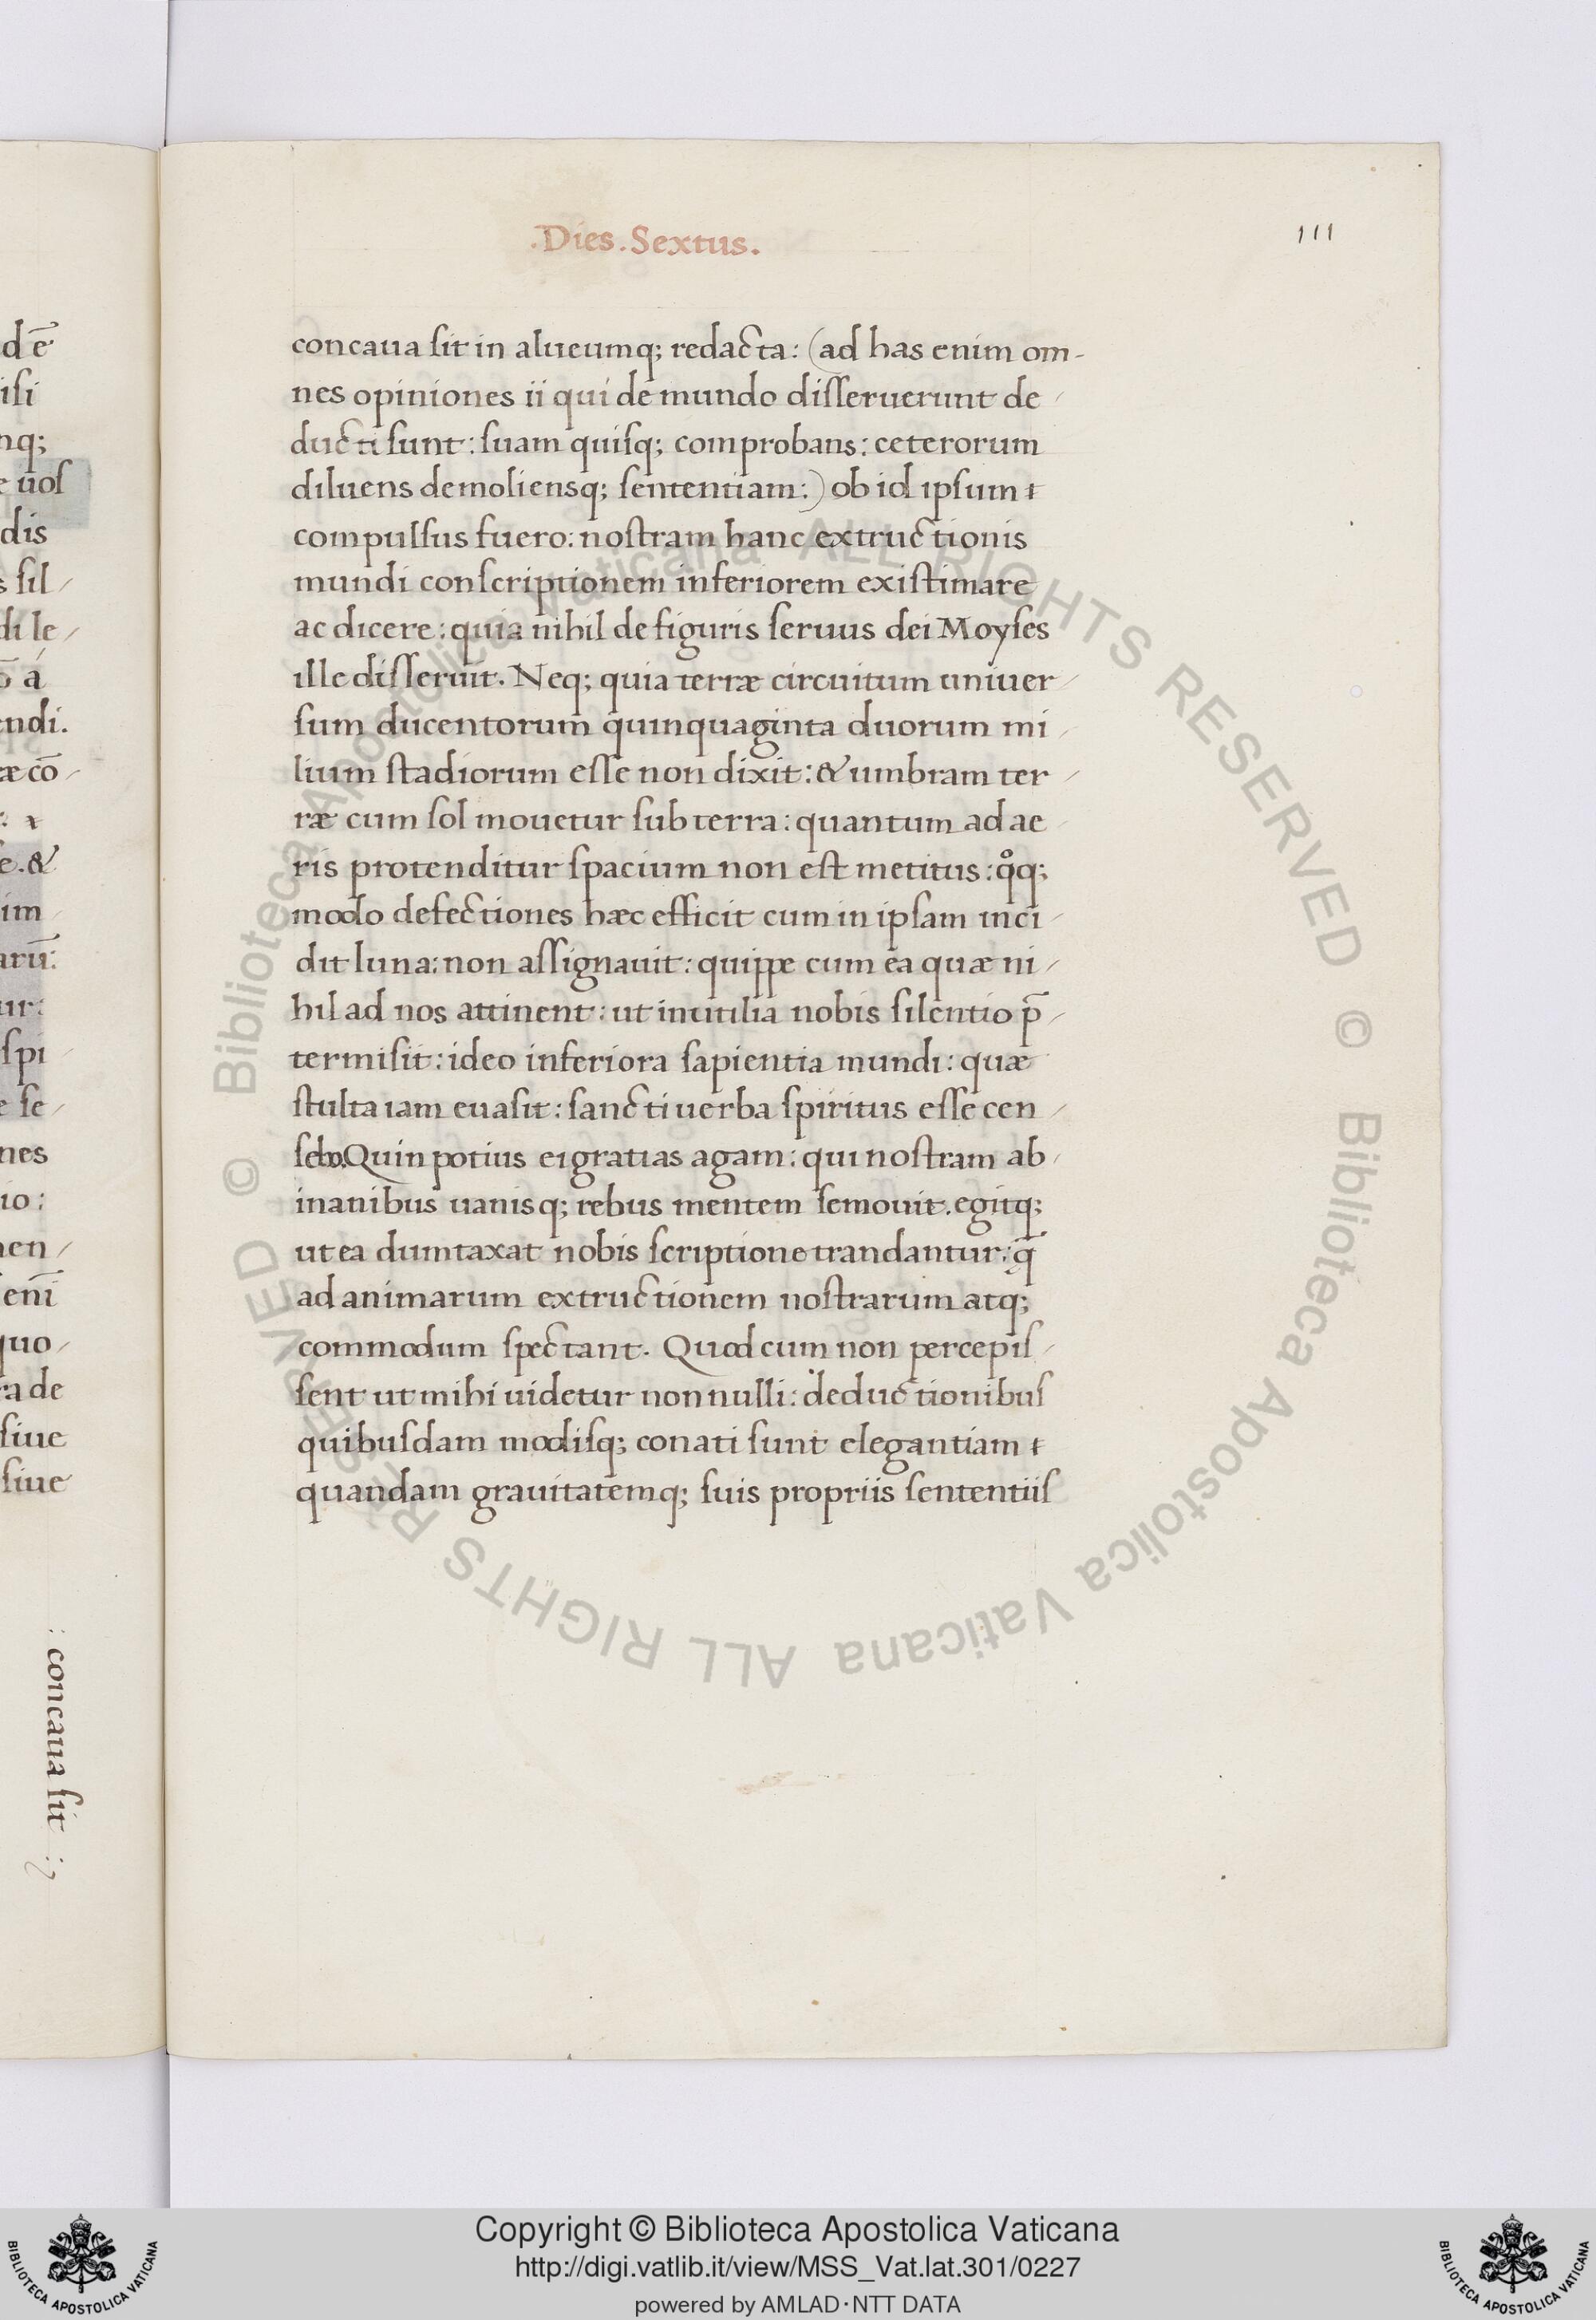 .Dies.Sextus.
111
concaua ſit in alueumq; redacta: (ad has enim om-
nes opiniones ii qui de mundo diſſeruerunt de /
ducti ſunt: ſuam quiſq; comprobans: ceterorum
diluens demolienſq; ſententiam:) ob id ipſum
compulſus fuero: noſtram hanc extructionis
mundi conſcriptionem inferiorem exiſtimare
ac dicere: quia nihil de figuris ſeruus dei Moyſes
ille diſſeruit. Neq; quia terræ circuitum uniuer /
ſum ducentorum quinquaginta duorum mi /
lium ſtadiorum eſſe non dixit: & umbram ter /
ræ cum ſol mouetur ſub terra: quantum ad ae /
ris protenditur ſpacium non eſt metitus: qͦq;
modo defectiones hæc efficit cum in ipſam inci /
dit luna: non aſſignauit: quippe cum ea quæ ni /
hil ad nos attinent: ut inutilia nobis ſilentio p̄ /
termiſit: ideo inferiora ſapientia mundi: quæ
ſtulta iam euaſit: ſancti uerba ſpiritus eſſe cen /
ſebo. Quin potius ei gratias agam: qui noſtram ab /
inanibus uanisq; rebus mentem ſemouit. egitq;
ut ea dumtaxat nobis ſcriptione trandantur: q̄
ad animarum extructionem noſtrarum atq;
commodum ſpectant. Quod cum non percepiſ /
ſent ut mihi uidetur non nulli: deductionibuſ
quibuſdam modiſq; conati ſunt elegantiam
quandam grauitatemq; ſuis propriis ſententiiſ
d ē
iſi
nq;
uoſ
dis
ſil /
di le /
á
endi.
æ cō /
e. &
im /
arū:
ur:
ſpi /
e ſe /
nes
io:
en /
enī
quo /
ra de
ſiue
ſiue
: concaua ſit :
© Biblioteca Apostolica Vaticana ALL RIGHTS RESERVED © Biblioteca Apostolica Vaticana ALL RIGHTS RESERVED
Copyright © Biblioteca Apostolica Vaticana
http://digi.vatlib.it/view/MSS_Vat.lat.301/0227
powered by AMLAD·NTT DATA
BIBLIOTECA APOSTOLICA VATICANA
BIBLIOTECA APOSTOLICA VATICANA